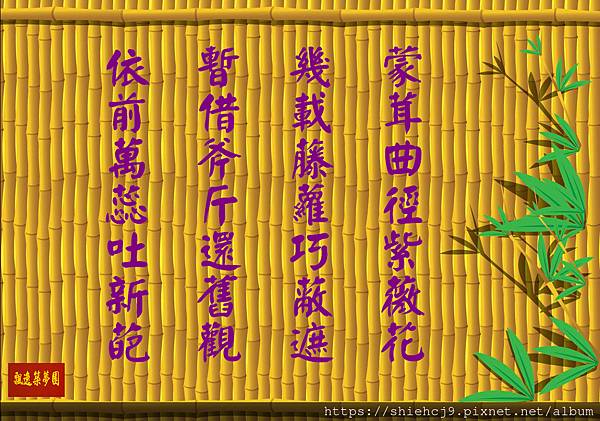 蒙茸曲徑紫薇花
幾載藤蘿巧蔽遮
暫借斧斤還舊觀
依前萬蕊吐新葩
飄逸築夢園
https://shiehcj9.pixnet.net/album